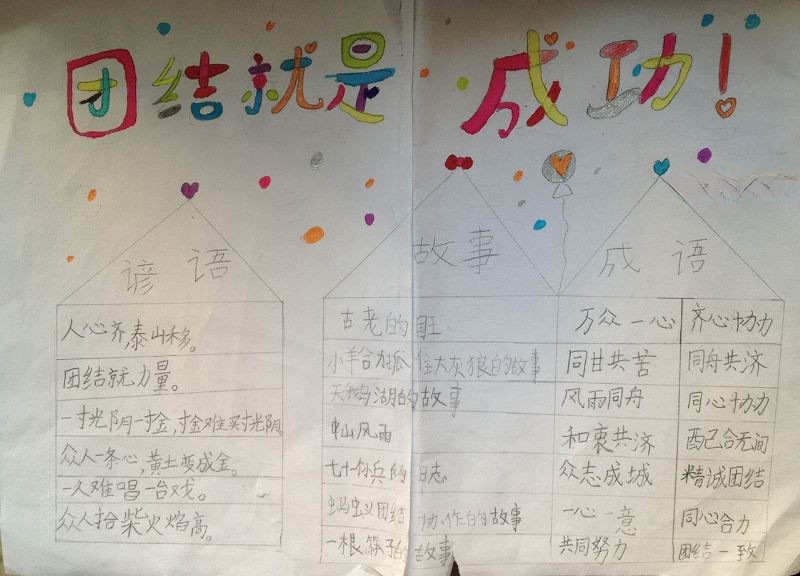 团结就是成功！
谚语
人心齐，泰山移。
团结就力量。
一寸光阴一寸金，寸金难买寸光阴。
众人一条心，黄土变成金。
一人难唱一台戏。
众人拾柴火焰高。
故事
古老的
小羊合力抓住大灰狼的故事
天鹅湖的故事
山风雨
七十个小兵的日志
蚂蚁团结协作的故事
一根筷子的故事
成语
万众一心 齐心协力
同甘共苦 同舟共济
风雨同舟 同心协力
和衷共济 配合无间
众志成城 精诚团结
一心一意 同心合力
共同努力 团结一致